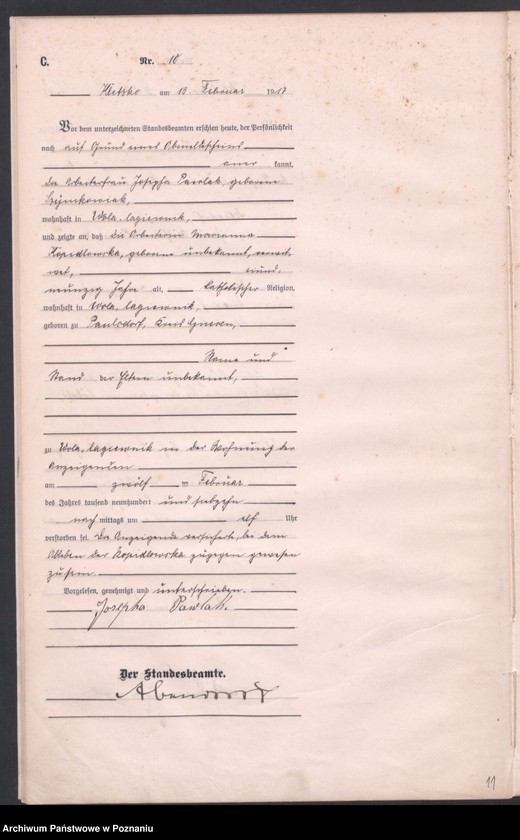 C.
Nr. 10
Kletzko am 13 Februar 1917
Vor dem unterzeichneten Standesbeamten erschien heute, der Persönlichkeit
nach auf Grund eines
aner kannt,
die Arbeiterfrau Josepha Pawlak, geborene
Szymkowiak,
wohnhaft in Wola-lagiewnik,
und zeigte an, daß die Arbeiterin Marianna
Kopidlowska, geborene unbekannt, verwit-
wet,
neunzig Jahre alt, katholischer Religion,
wohnhaft in Wola-lagiewnik,
geboren zu Paulsdorf, Kreis Gnesen,
Name und
Stand der Eltern unbekannt,
zu Wola-lagiewnik in der Wohnung der
Anzeigenden
am zwölf ten Februar
des Jahres tausend neunhundert und siebzehn
nach mittags um elf Uhr
verstorben sei. Die Anzeigende versicherte, bei dem
Ableben der Kopidlowska zugegen gewesen
zu sein.
Vorgelesen, genehmigt und unterschrieben.
Josepha Pawlak.
Der Standesbeamte.
11
Archiwum Państwowe w Poznaniu